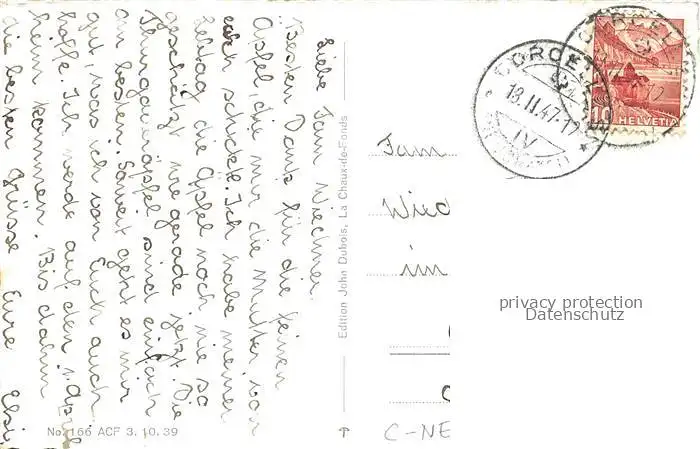 Liebe Fam Wiechner.
Besten Dank für die feinen
Äpfel die mir die Mutter von
euch schickte. Ich habe meiner
Lebtag die Äpfel noch nie so
geschätzt wie gerade jetzt. Die
Thurgaueräpfel sind einfach
am besten. Soweit geht es mir
gut, was ich von Euch auch
hoffe. Ich werde auf den 1. April
heim kommen. Bis dahin
die besten Grüsse Eure Elsi
No. 166 ACF 3. 10. 39
Edition John Dubois, La Chaux-de-Fonds
CORCELLES
18.II.47.-17
IV
10
HELVETIA
Fam
Wie
im
privacy protection
Datenschutz
C-NE